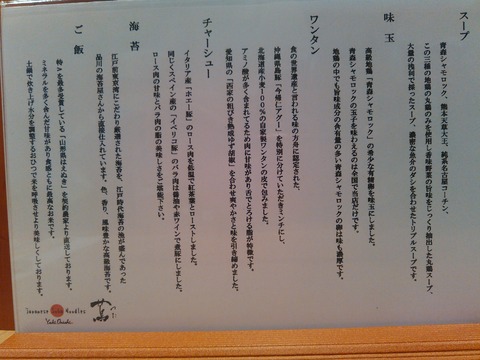 スープ
青森シャモロック、熊本天草大王、純系名古屋コーチン、
この三種の地鶏の丸鶏のみを使用し香味野菜の旨味をじっくり抽出した丸鶏スープ、
大量の浅利で採ったスープ、濃密な魚介のダシを合わせたトリプルスープです。
味玉
高級地鶏「青森シャモロック」の希少な有精卵を味玉にしました。
青森シャモロックの玉子を味わえるのは全国で当店だけです。
地鶏の中でも旨味成分の含有量の多い青森シャモロックの卵は味も濃厚です。
ワンタン
食の世界遺産と言われる味の方舟に認定された
沖縄県島豚「今帰仁アグー」を特別に分けていただきミンチにし、
北海道産小麦100%の自家製ワンタンの皮で包みました。
アミノ酸が多く含まれてるため肉に甘味があり舌でとろける脂が特徴です。
愛知県の「西家の粗びき熟成ゆず胡椒」を合わせ爽やかさと味を引き締めました。
チャーシュー
イタリア産「ホエー豚」のロース肉を低温で紅茶葉とローストしました。
同じくスペイン産の「イベリコ豚」のバラ肉は醤油や赤ワインで煮豚にしました。
ロース肉の甘味とバラ肉の脂の美味しさをご堪能下さい。
海苔
江戸前東京湾にこだわり厳選された海苔を、江戸時代海苔の池が盛んであった
品川の海苔屋さんから直接仕入れています。色、香り、風味豊かな高級海苔です。
ご飯
特Aを最多受賞している「山形県はえぬき」を契約農家より直送しております。
ミネラルを多く含んだ甘味があり食感ともに最高なお米です。
土鍋で炊き上げ水分を調整するおひつで米を呼吸させより美味しくしております。
Japanese Soba Noodles
Yuki Onishi
蔦